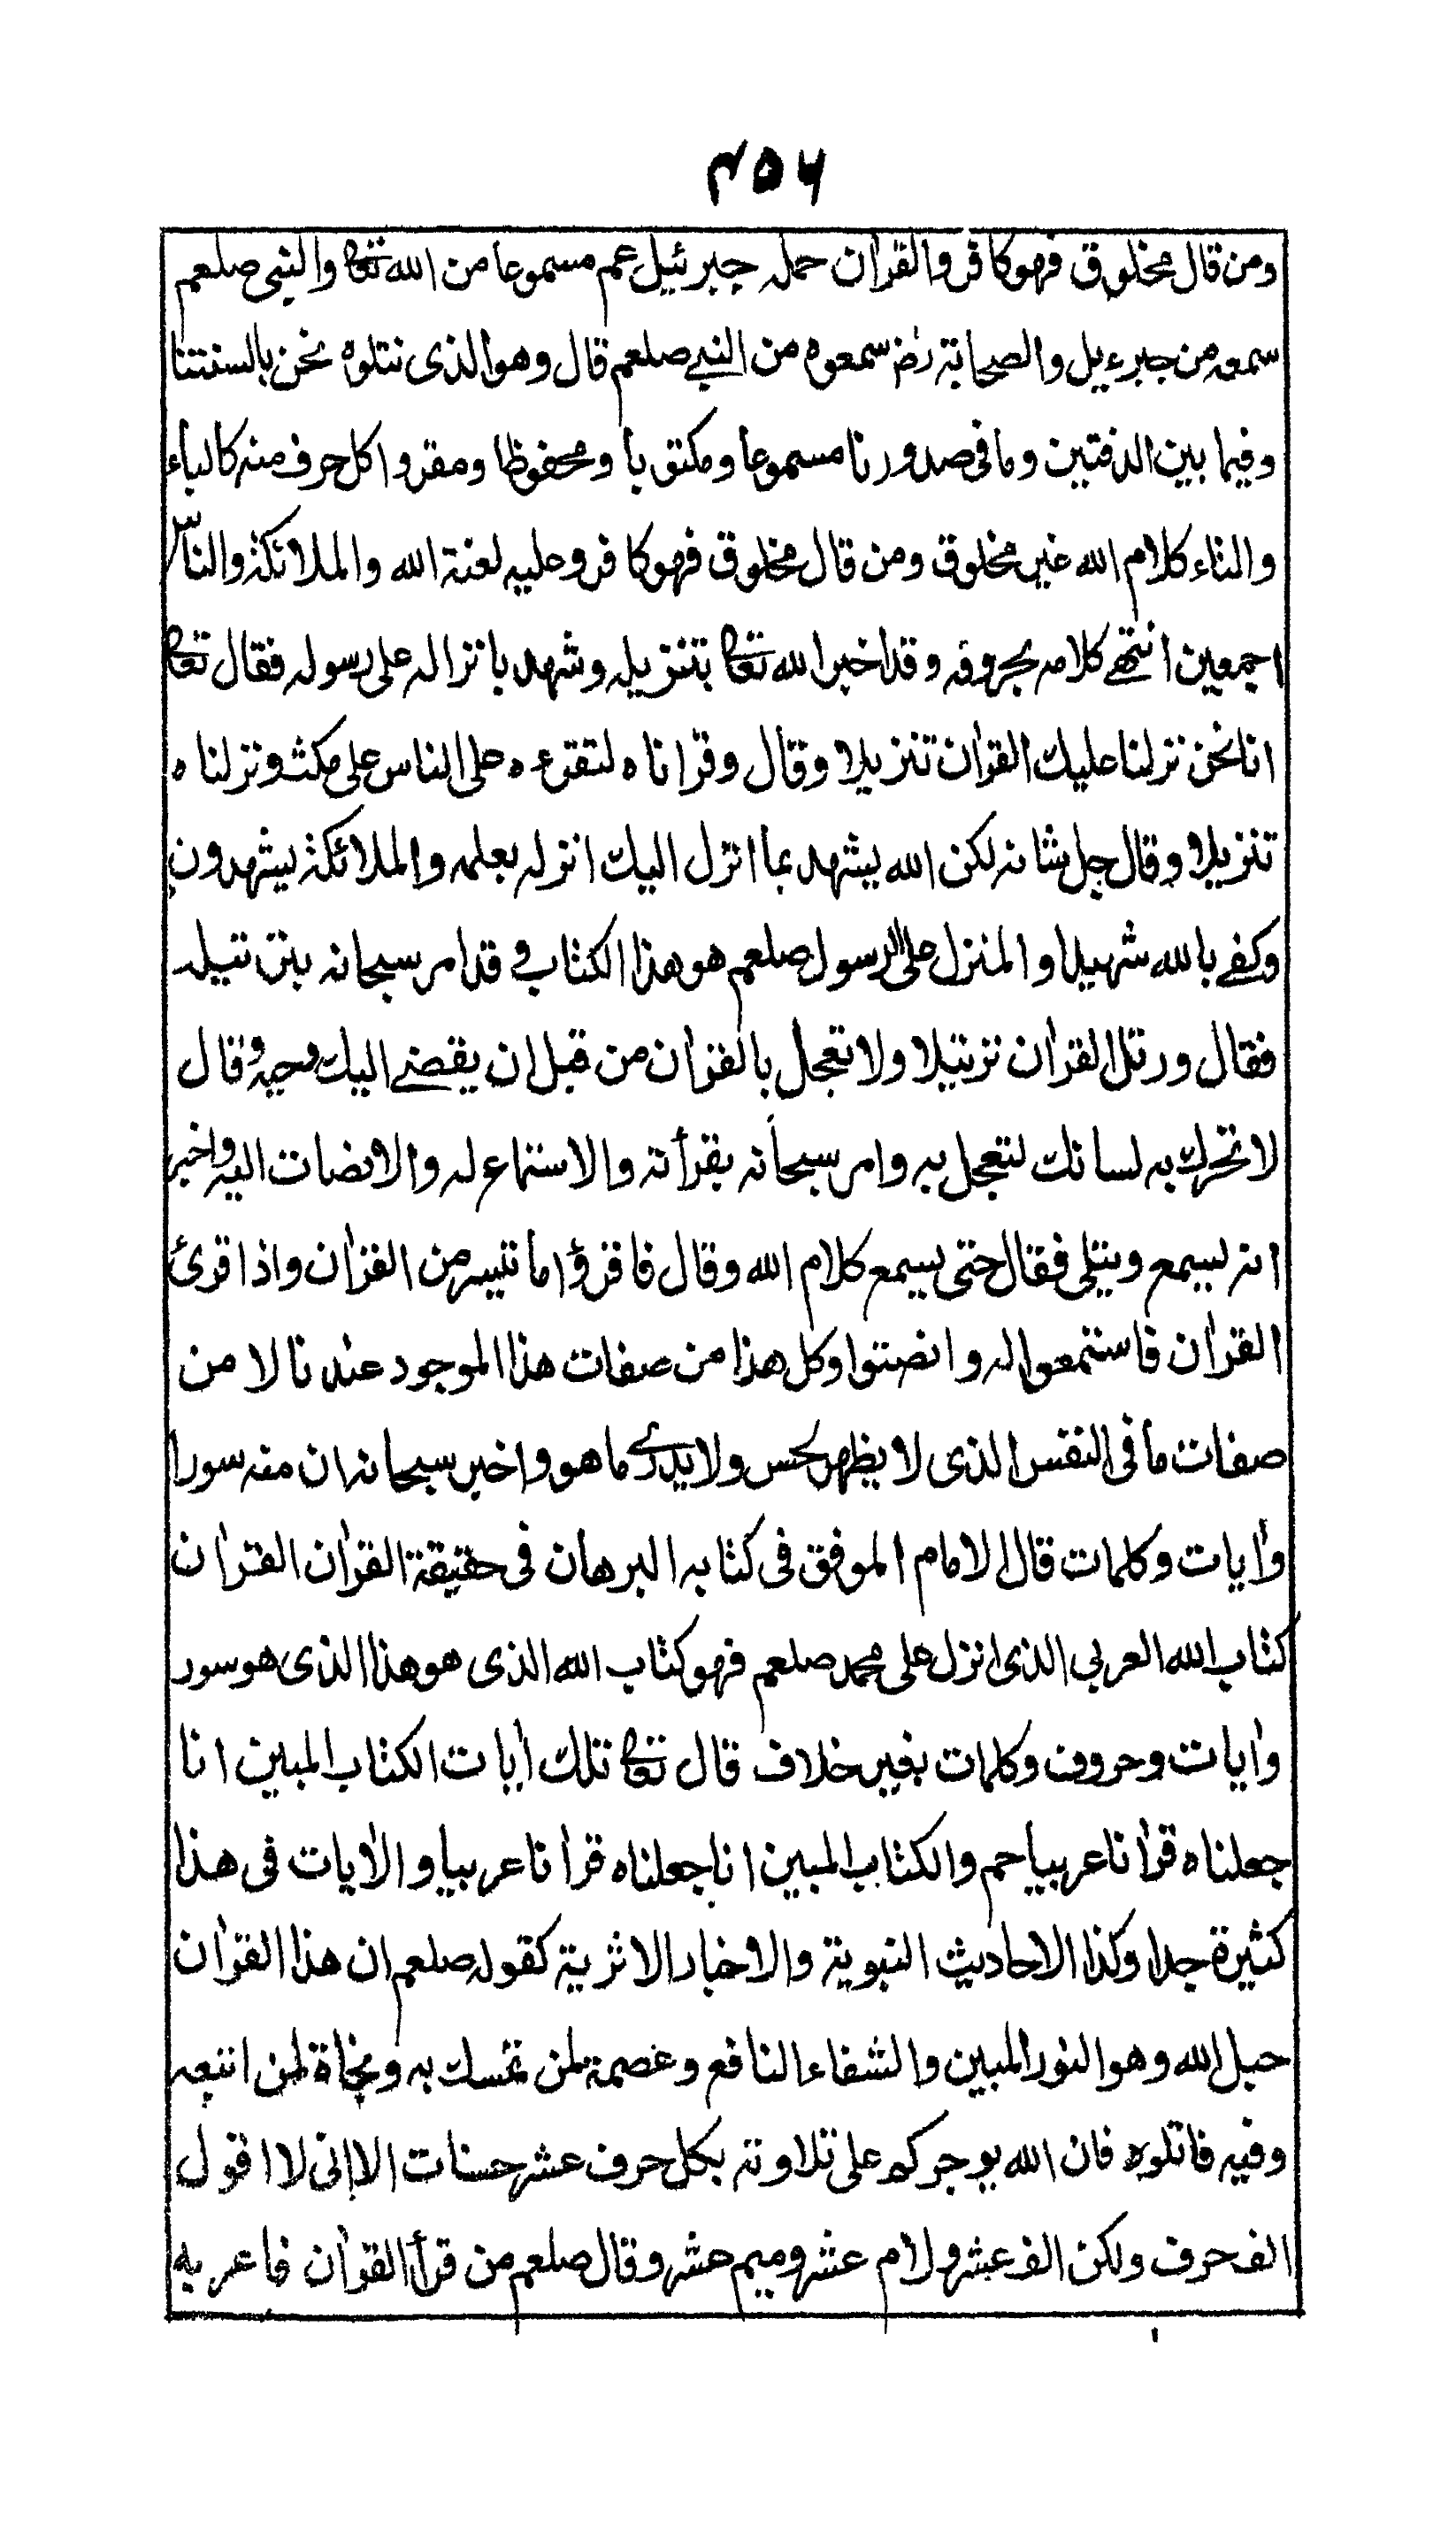 ۴۵۶
ومن قال مخلوق فهو كافر والقراٰن حمله جبرئيل عم مسموعا من الله تعا والنبى صلعم
سمعه من جبرءيل والصحابة رض سمعوه من النبي صلعم قال وهو الذى نتلوه نحن بالسنتنا
وفيما بين الدفتين وما فى صدورنا مسموعا ومكتوبا ومحفوظا ومقروا كل حرف منه كالباء
والتاء كلام الله غير مخلوق ومن قال مخلوق فهو كافر وعليه لعنة الله والملائكة والناس
اجمعين انتهى كلامه بحروفه وقد اخبر الله تعا بتنزيله وشهد بانزاله على رسوله فقال تعا
انا نحن نزلنا عليك القراٰن تنزيلا وقال وقراٰناه لتقرءه على الناس على مكث ونزلناه
تنزيلا وقال جل شانه لكن الله يشهد بما انزل اليك انزله بعلمه والملائكة يشهدون
وكفى بالله شهيدا والمنزل على الرسول صلعم هو هذا الكتاب و قد امر سبحانه بترتيله
فقال ورتل القراٰن ترتيلا ولا تعجل بالقراٰن من قبل ان يقضى اليك وحيه وقال
لا تحرك به لسانك لتعجل به وامر سبحانه بقرأته والاستماع له والانصات اليه واخبر
انه يسمع ويتلى فقال حتى يسمع كلام الله وقال فاقرؤا ما تيسر من القراٰن واذا قرئ
القراٰن فاستمعوا له وانصتوا وكل هذا من صفات هذا الموجود عندنا لا من
صفات ما فى النفس الذى لا يظهر لحس ولا يدرى ما هو واخبر سبحانه ان منه سورا
واٰيات وكلمات قال الامام الموفق فى كتابه البرهان فى حقيقة القراٰن القراٰن
كتاب الله العربى الذى انزل على محمد صلعم فهو كتاب الله الذى هو هذا الذى هو سور
واٰيات وحروف وكلمات بغير خلاف قال تعا تلك اٰيات الكتاب المبين انا
جعلناه قراٰنا عربيا حم والكتاب المبين انا جعلناه قراٰنا عربيا والاٰيات فى هذا
كثيرة جدا وكذا الاحاديث النبوية والاخبار الاثرية كقوله صلعم ان هذا القراٰن
حبل الله وهو النور المبين والشفاء النافع وعصمة لمن تمسك به ونجاة لمن اتبعه
وفيه فاتلوه فان الله يوجركم على تلاوته بكل حرف عشر حسنات الا انى لا اقول
الف حرف ولكن الف عشر ولام عشر وميم عشر وقال صلعم من قرأ القراٰن فاعربه